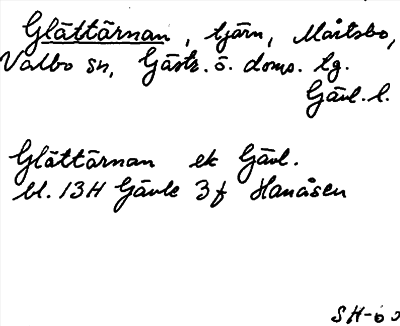 Glättärnan, tjärn, Mårtsbo,
Valbo sn, Gästr. ö. doms. tg.
Gävl. l.
Glättärnan ek Gävl.
bl. 13H Gävle 3f Hanåsen